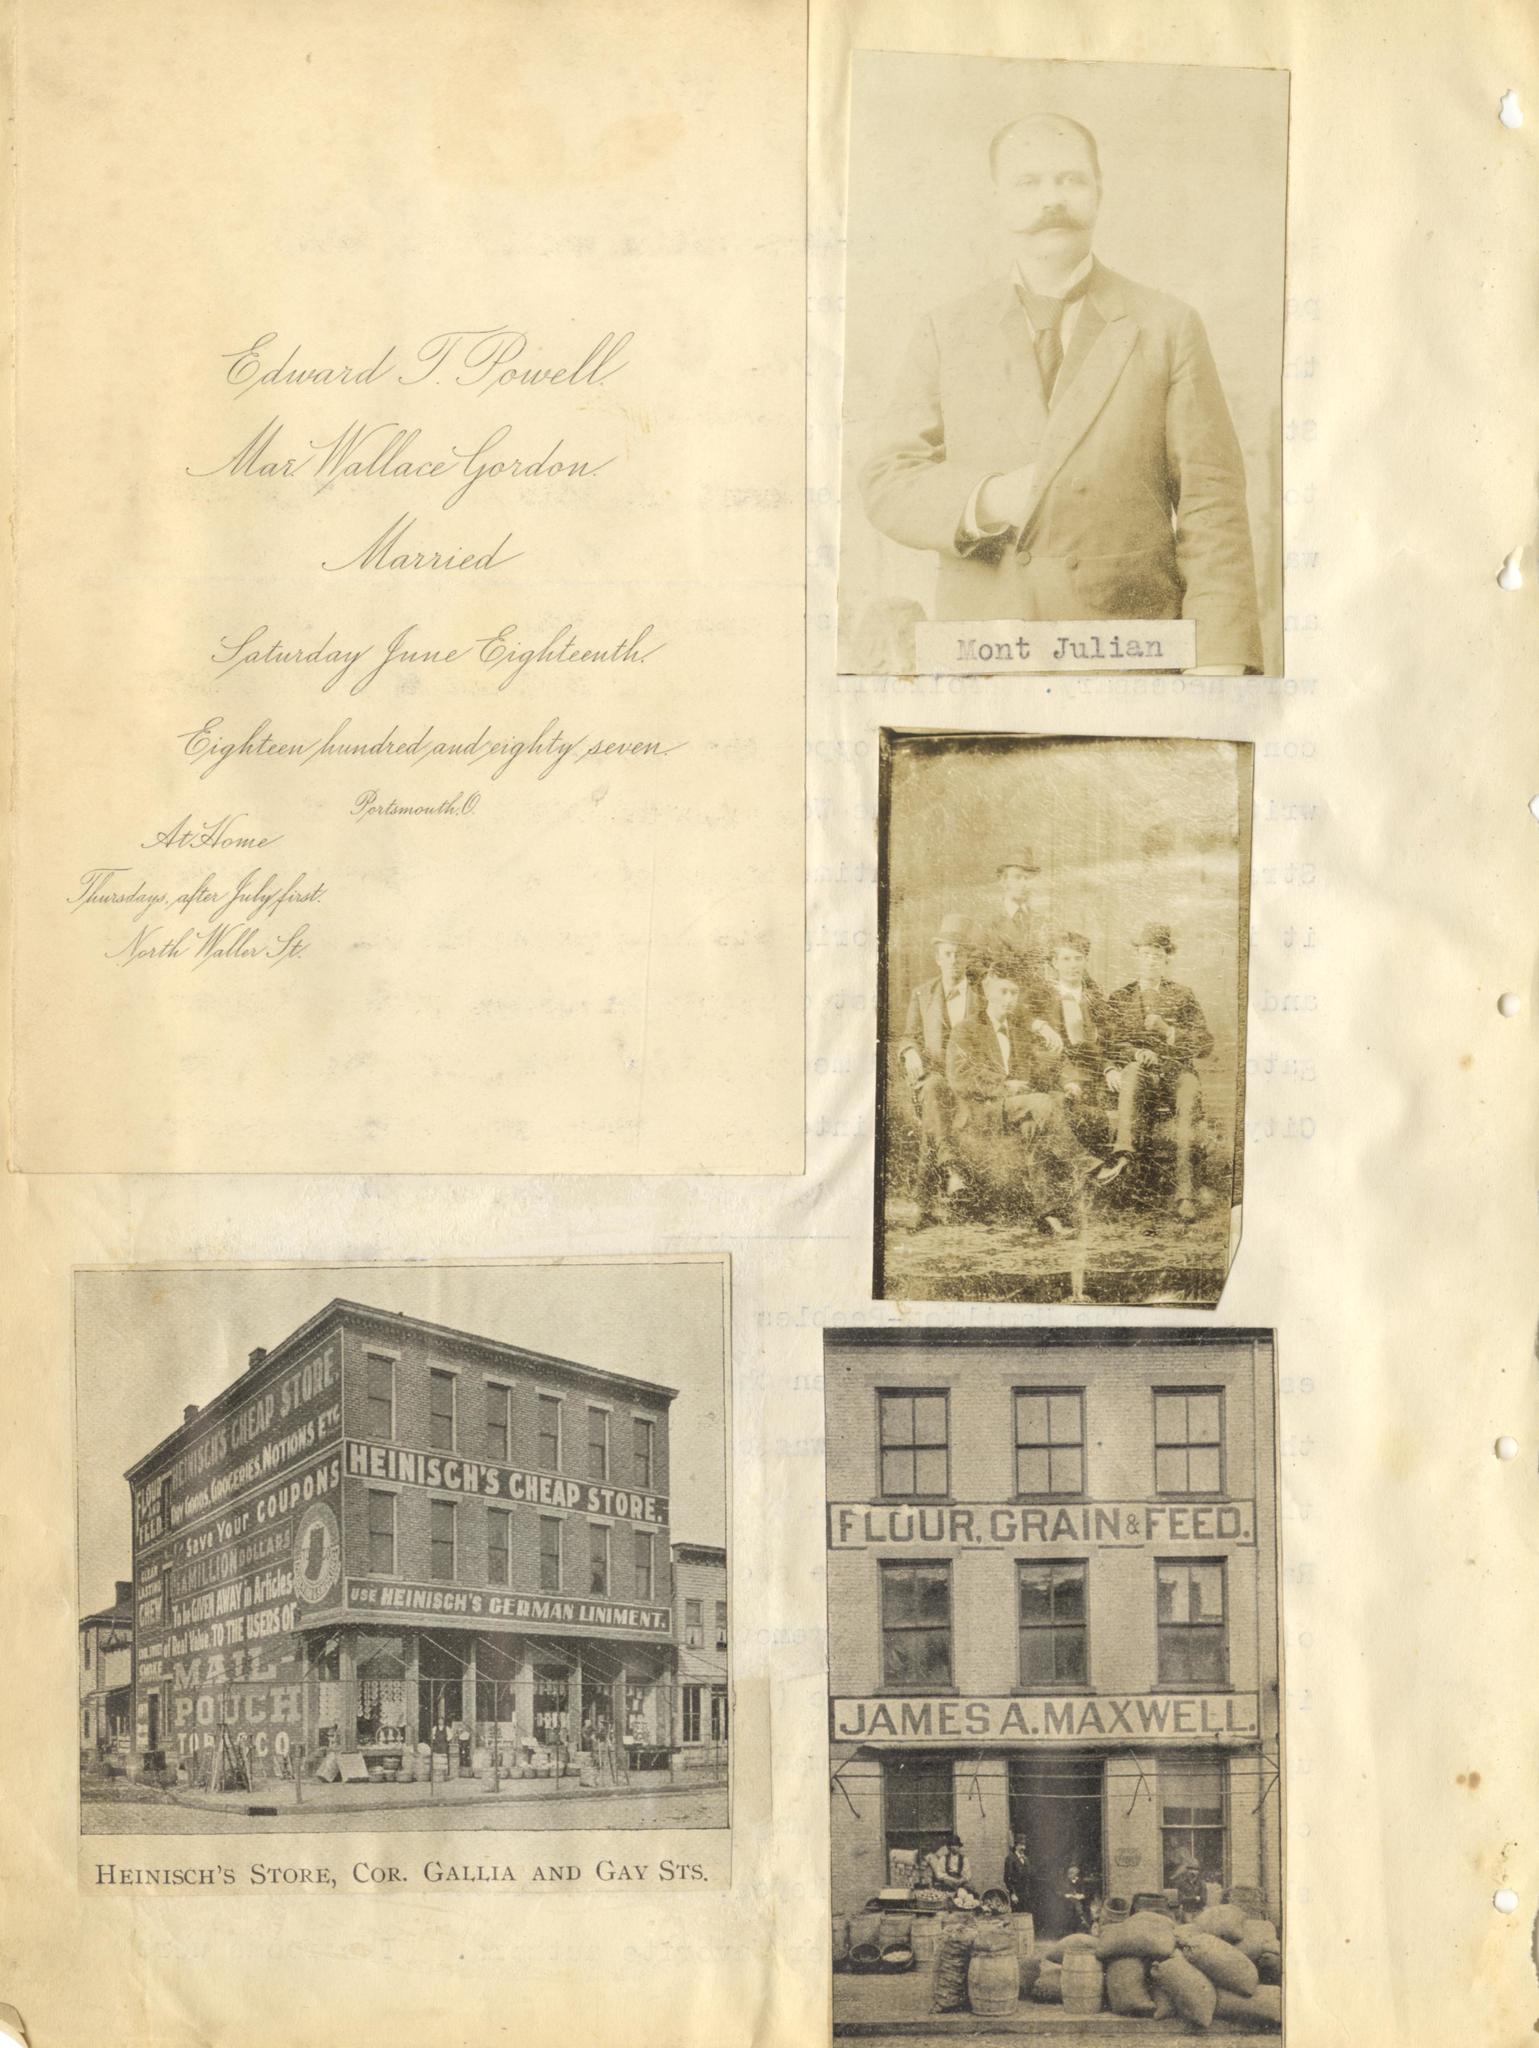 Edward T. Powell.
Mar. Wallace Gordon.
Married
Saturday June Eighteenth.
Eighteen hundred and eighty seven.
Portsmouth. O.
At Home
Thursdays, after July first.
North Waller St.
Mont Julian
HEINISCH'S CHEAP STORE.
DRY GOODS, GROCERIES, NOTIONS ETC
FLOUR
AND
FEED
Save Your COUPONS
A MILLION DOLLARS
To be GIVEN AWAY in Articles
of Real Value TO THE USERS OF
MAIL-
POUCH
TOBACCO
LASTING
CHEW
SMOKE
HEINISCH'S CHEAP STORE.
USE HEINISCH'S GERMAN LINIMENT.
HEINISCH'S STORE, COR. GALLIA AND GAY STS.
FLOUR, GRAIN & FEED.
JAMES A. MAXWELL.